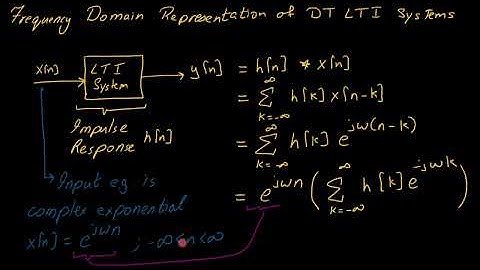 Frequency Domain Representation of DT LTI Systems
x[n] → LTI System → y[n] = h[n] * x[n]
= ∑_{k=-∞}^{∞} h[k] x[n-k]
Impulse Response h[n]
= ∑_{k=-∞}^{∞} h[k] e^{jω(n-k)}
= e^{jωn} ( ∑_{k=-∞}^{∞} h[k] e^{-jωk} )
Input eg is
complex exponential
x[n] = e^{jωn} ; -∞<n<∞